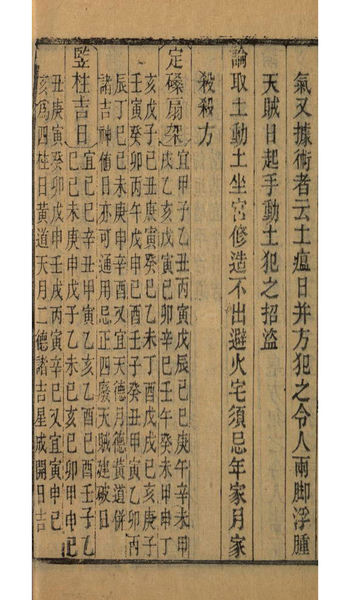 氣又據術者云土瘟日并方犯之令人兩脚浮腫
天賊日起手動土犯之招盜
論取土動土坐宮修造不出避火宅須忌年家月家
殺殺方
定磉扇架 宜甲子乙丑丙寅戊辰己巳庚午辛未甲
戌乙亥戊寅己卯辛巳壬午癸未甲申丁
亥戊子己丑庚寅癸巳乙未丁酉戊戌己亥庚子
壬寅癸卯丙午戊申己酉壬子癸丑甲寅乙卯丙
辰丁巳己未庚申辛酉又宜天德月德黃道併
諸吉神值日亦可通用忌正四廢天賊建破日
竪柱吉日 宜己巳辛丑甲寅乙亥乙酉己酉壬子乙
巳己未庚申戊子乙未己亥己卯甲申己
丑庚寅癸卯戊申壬戌丙寅辛巳又宜寅申巳
亥爲四柱日黃道天月二德諸吉星成開日吉